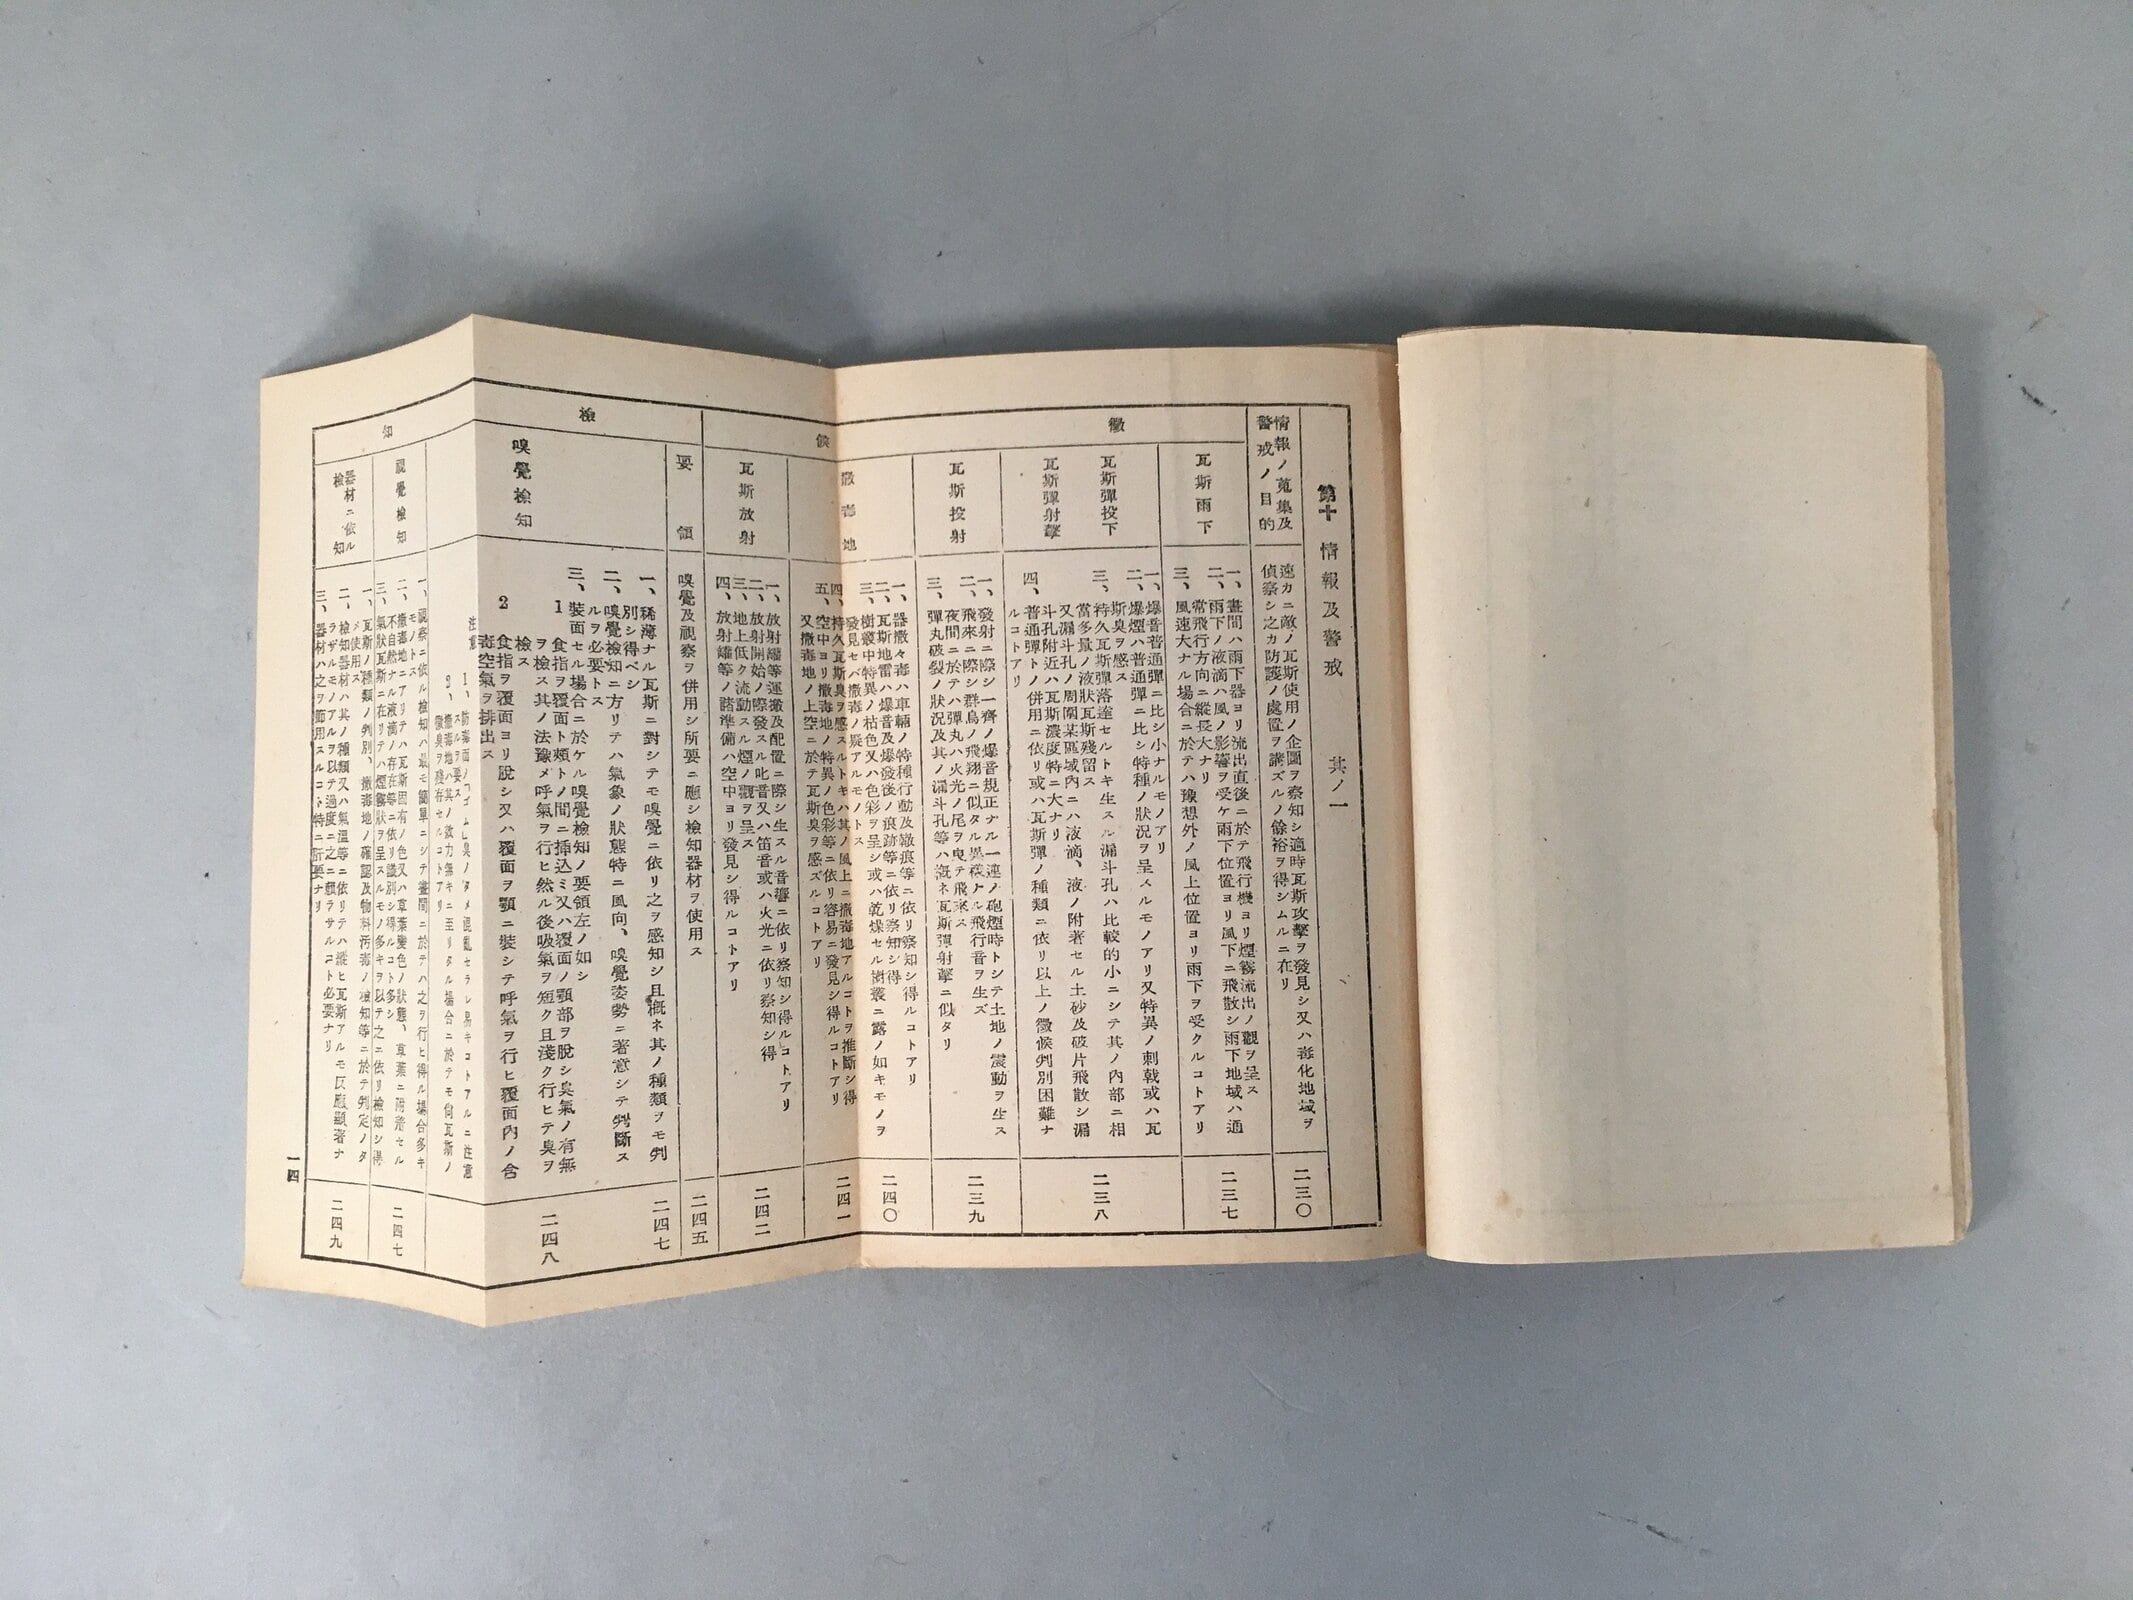 第十 情報及警戒 其ノ一
情報ノ蒐集及
警戒ノ目的
速カニ敵ノ瓦斯使用ノ企圖ヲ察知シ適時瓦斯攻擊ヲ發見シ又ハ毒化地域ヲ
偵察シ之カ防護ノ處置ヲ講ズルノ餘裕ヲ得シムルニ在リ
二三〇
徵
候
瓦斯雨下
一、晝間ハ雨下器ヨリ流出直後ニ於テ飛行機ヨリ煙霧流出ノ觀ヲ呈ス
二、雨下ノ液滴ハ風ノ影響ヲ受ケ雨下位置ヨリ風下ニ飛散シ雨下地域ハ通
常飛行方向ニ縱長大ナリ
三、風速大ナル場合ニ於テハ豫想外ノ風上位置ヨリ雨下ヲ受クルコトアリ
二三七
瓦斯彈投下
瓦斯彈射擊
一、爆音普通彈ニ比シ小ナルモノアリ
二、爆煙ハ普通彈ニ比シ特種ノ狀況ヲ呈スルモノアリ又特異ノ刺戟或ハ瓦
斯臭ヲ感ス
三、持久瓦斯彈落達セルトキ生スル漏斗孔ハ比較的小ニシテ其ノ內部ニ相
當多量ノ液狀瓦斯殘留ス
又漏斗孔ノ周圍某區域內ニハ液滴、液ノ附著セル土砂及破片飛散シ漏
斗孔附近ハ瓦斯濃度特ニ大ナリ
四、普通彈トノ併用ニ依リ或ハ瓦斯彈ノ種類ニ依リ以上ノ徵候判別困難ナ
ルコトアリ
二三八
瓦斯投射
一、發射ニ際シ一齊ノ爆音規正ナル一連ノ砲煙時トシテ土地ノ震動ヲ生ス
二、飛來ニ際シ群鳥ノ飛翔ニ似タル異樣ナル飛行音ヲ生ズ
夜間ニ於テハ彈丸ハ火光ノ尾ヲ曳テ飛來ス
三、彈丸破裂ノ狀況及其ノ漏斗孔等ハ槪ネ瓦斯彈射擊ニ似タリ
二三九
撒毒地
一、器撒々毒ハ車輛ノ特種行動及轍痕等ニ依リ察知シ得ルコトアリ
二、瓦斯地雷ハ爆音及爆發後ノ痕跡等ニ依リ察知シ得
三、樹叢中特異ノ枯色又ハ色彩ヲ呈シ或ハ乾燥セル樹叢ニ露ノ如キモノヲ
發見セバ撒毒ノ疑アルモノトス
四、持久瓦斯臭ヲ感スルトキハ其ノ風上ニ撒毒地アルコトヲ推斷シ得
五、空中ヨリ撒毒地ノ特異ノ色彩等ニ依リ容易ニ發見シ得ルコトアリ
又撒毒地ノ上空ニ於テ瓦斯臭ヲ感ズルコトアリ
二四〇
二四一
瓦斯放射
一、放射罐等運搬及配置ニ際シ生スル音響ニ依リ察知シ得ルコトアリ
二、放射開始ノ際發スル叱音又ハ笛音或ハ火光ニ依リ察知シ得
三、地上低ク流動スル煙ノ觀ヲ呈ス
四、放射罐等ノ諸準備ハ空中ヨリ發見シ得ルコトアリ
二四二
檢
知
要領
嗅覺及視察ヲ併用シ所要ニ應シ檢知器材ヲ使用ス
二四五
嗅覺檢知
一、稀薄ナル瓦斯ニ對シテモ嗅覺ニ依リ之ヲ感知シ且槪ネ其ノ種類ヲモ判
別シ得ベシ
二、嗅覺檢知ニ方リテハ氣象ノ狀態特ニ風向、嗅覺姿勢ニ著意シテ判斷ス
ルヲ必要トス
三、裝面セル場合ニ於ケル嗅覺檢知ノ要領左ノ如シ
1 食指ヲ覆面ト頰トノ間ニ揷込ミ又ハ覆面ノ顎部ヲ脫シ臭氣ノ有無
ヲ檢ス其ノ法豫メ呼氣ヲ行ヒ然ル後吸氣ヲ短ク且淺ク行ヒテ臭ヲ
檢ス
2 食指ヲ覆面ヨリ脫シ又ハ覆面ヲ顎ニ裝シテ呼氣ヲ行ヒ覆面內ノ含
毒空氣ヲ排出ス
注意 1、防毒面ノ「ゴム」臭ノタメ混亂セラレ易キコトアルニ注意
スルヲ要ス
2、撒毒地ハ其ノ效力無キニ至リタル場合ニ於テモ尙瓦斯ノ
微臭ヲ殘存セルコトアリ
二四七
二四八
視覺檢知
一、視察ニ依ル檢知ハ最モ簡單ニシテ晝間ニ於テハ之ヲ行ヒ得ル場合多キ
モノトス
二、撒毒地ニアリテハ瓦斯固有ノ色又ハ草葉變色ノ狀態、草葉ニ附著セル
不自然ナル液滴ノ存在等ニ依リ識別シ得ルコト多シ
三、氣狀瓦斯ニ在リテハ煙霧狀ヲ呈スルモノ多キヲ以テ之ニ依リ檢知シ得
二四七
器材ニ依ル
檢知
一、瓦斯ノ種類ノ判別、撒毒地ノ確認及物料汚毒ノ檢知等ニ於テ判定ノタ
メ使用ス
二、檢知器材ハ其ノ種類又ハ氣溫等ニ依リテハ縱ヒ瓦斯アルモ反應顯著ナ
ラザルモノアルヲ以テ過度ニ之ニ賴ラサルコト必要ナリ
三、器材ハ之ヲ節用スルコト特ニ肝要ナリ
二四九
一四